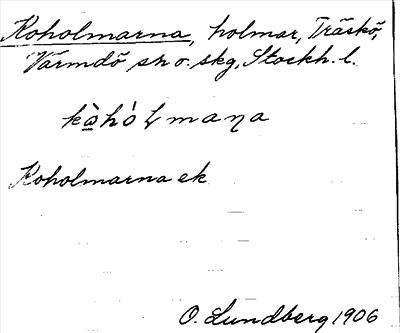 Koholmarna, holmar, Träskö,
Värmdö sn o. skg, Stockh. l.
kạ̀hóɫmaꞃa
Koholmarna ek
O. Lundberg 1906